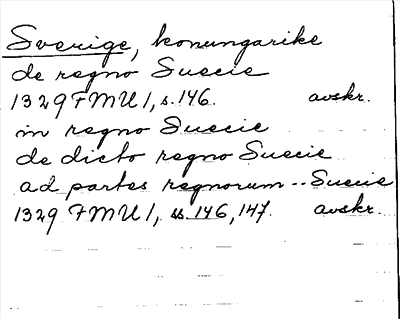 Sverige, konungarike
de regno Suecie
1329 FMU 1, s. 146. avskr.
in regno Suecie
de dicto regno Suecie
ad partes regnorum -- Suecie
1329 FMU 1, ss. 146, 147. avskr.